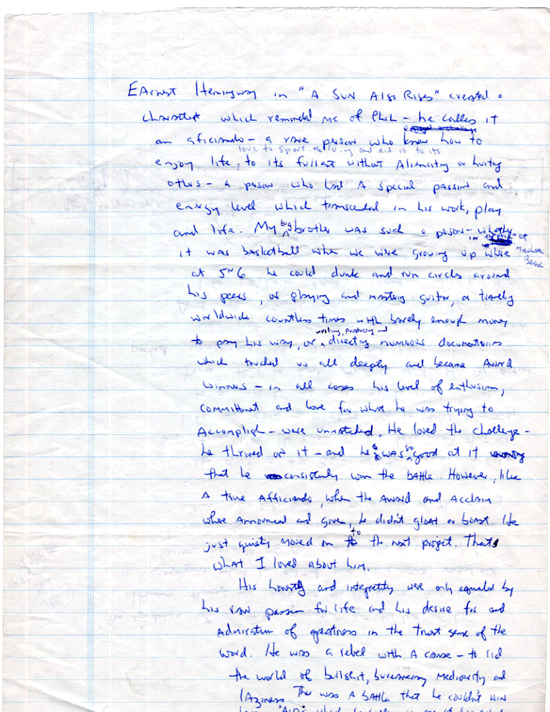 Earnst Hemingway in "A Sun Also Rises" created a
character which reminded me of Phil - he calles it
an aficianado - a rare person who knew how to
love to spent
enjoy life, to its fullest without Alienating or hurting
others - a person who had A special passion and
energy level which transcended in his work, play
and life. My big brother was such a person - whether
it was basketball when we were growing up in Manhattan Beach where
at 5'6 he could dunk and run circles around
his peers, or playing and mastering guitar, or traveling
worldwide countless times with barely enough money
to pay his way, or writing, producing and directing numerous documentaries
which touched us all deeply and became Award
winners - in all cases his level of enthusiasm,
committment and love for what he was trying to
Accomplish - were unmatched. He loved the challenge -
he thrived on it - and he was so good at it
that he consistently won the battle. However, like
A true Afficianado, when the Award and Acclaim
where Announced and given, he didn't gloat or boast. He
just quietly moved on to the next project. Thats
what I loved about him.
His honesty and integretity were only equaled by
his raw passion for life and his desire for and
Admiration of greatness in the truest sense of the
word. He was a rebel with A cause - to rid
the world of bullshit, bureaucracy mediocrity and
laziness. This was A battle that he couldn't win